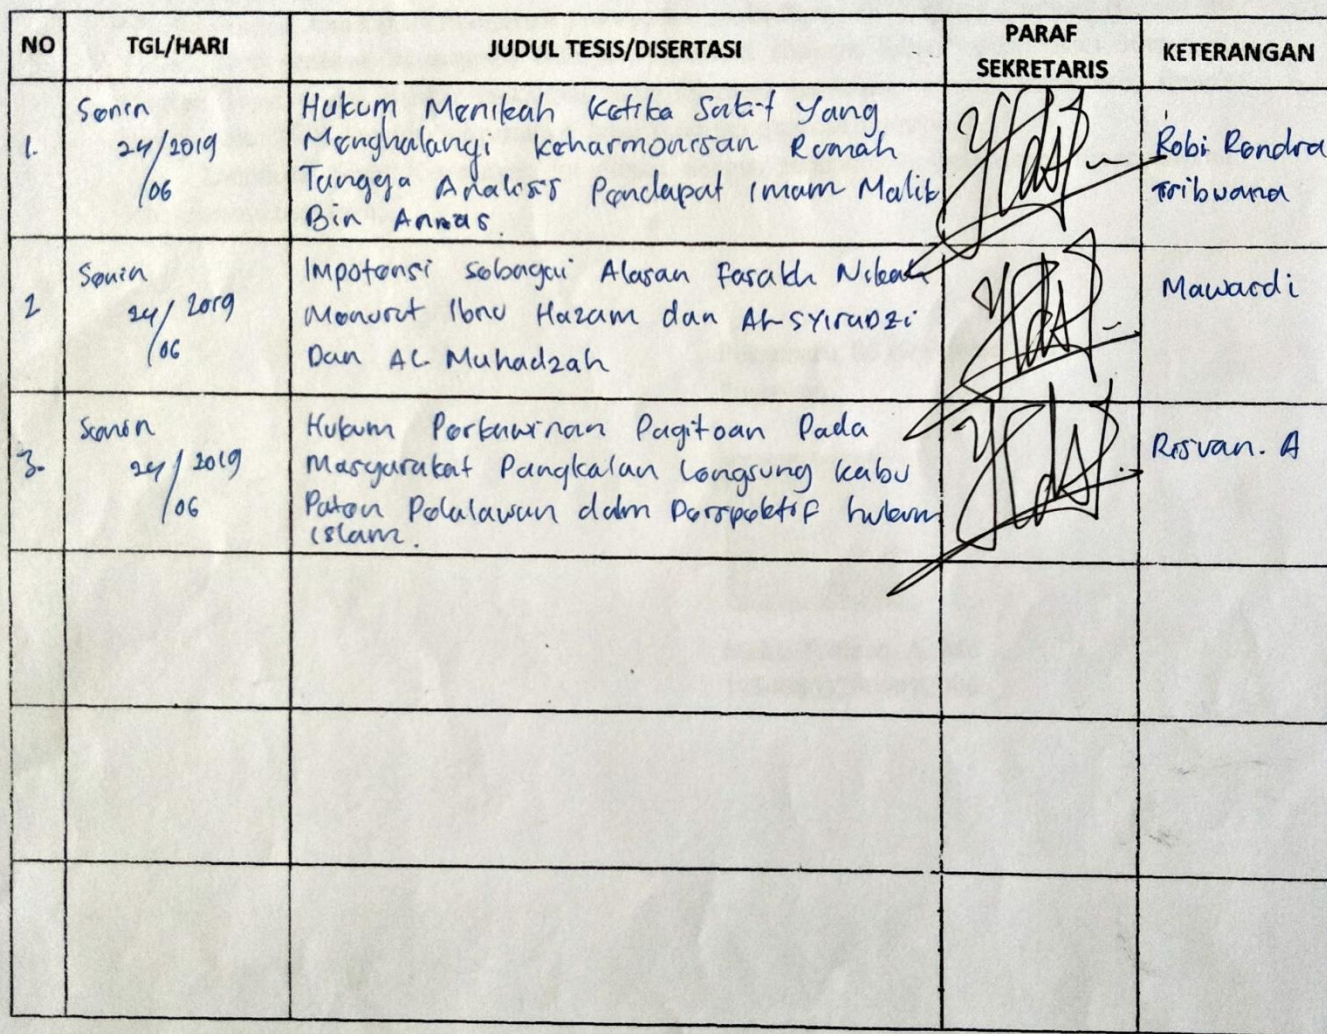 NO TGL/HARI JUDUL TESIS/DISERTASI PARAF SEKRETARIS KETERANGAN
1. Senin 24/2019 /06
Hukum Menikah Ketika Sakit Yang
Menghalangi Keharmonisan Rumah
Tangga Analisis Pendapat Imam Malik
Bin Annas.
Robi Rendra
Tribwana
2 Senin 24/2019 /06
Impotensi sebagai Alasan Fasakh Nikah
Menurut Ibnu Hazam dan Al-Syiradzi
Dan AL Muhadzah
Mawardi
3. Senin 24/2019 /06
Hukum Perkawinan Pagitoan Pada
Masyarakat Pangkalan Longsung Kabu
Paten Pelalawan dalm Perspektif hukum
islam.
Risvan. A